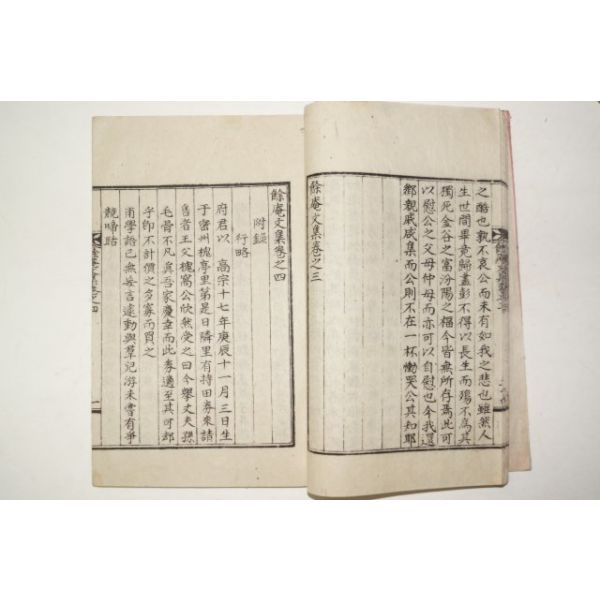 之酷也孰不哀公而未有如我之悲也雖然人
生世間畢竟歸盡彭不得以長生而殤不爲其
獨死金谷之富汾陽之福今皆無所存焉此可
以慰公之父母仲母而亦可以自慰也今我還
鄉親戚咸集而公則不在一杯慟哭公其知耶
餘庵文集卷之三
餘庵文集卷之四
附錄
行略
府君以 高宗十七年庚辰十一月三日生
于密州槐亭里第是日隣里有持田券來請
售者王父槐窩公欣然受之曰今擧丈夫孫
毛骨不凡眞吾家慶幸而此券適至其可却
乎卽不計價之多寡而買之
甫學語已無妄言遽動與群兒游未嘗有爭
競啼